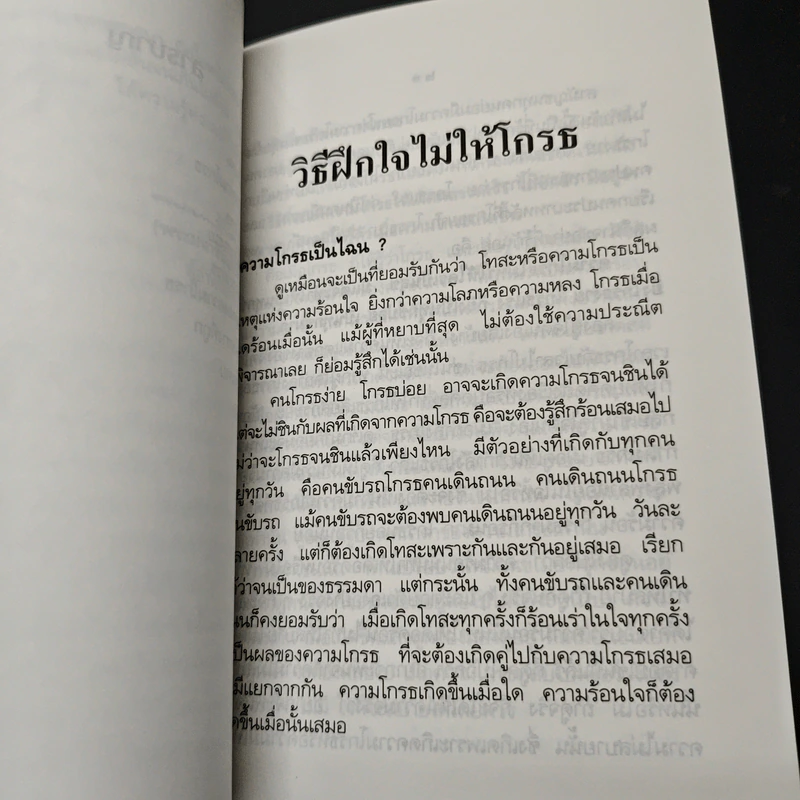 วิธีฝึกใจไม่ให้โกรธ
ความโกรธเป็นไฉน ?
ดูเหมือนจะเป็นที่ยอมรับกันว่า โทสะหรือความโกรธเป็น
เหตุแห่งความร้อนใจ ยิ่งกว่าความโลภหรือความหลง โกรธเมื่อ
ดร้อนเมื่อนั้น แม้ผู้ที่หยาบที่สุด ไม่ต้องใช้ความประณีต
พิจารณาเลย ก็ย่อมรู้สึกได้เช่นนั้น
คนโกรธง่าย โกรธบ่อย อาจจะเกิดความโกรธจนชินได้
แต่จะไม่ชินกับผลที่เกิดจากความโกรธ คือจะต้องรู้สึกร้อนเสมอไป
ไม่ว่าจะโกรธจนชินแล้วเพียงไหน มีตัวอย่างที่เกิดกับทุกคน
อยู่ทุกวัน คือคนขับรถโกรธคนเดินถนน คนเดินถนนโกรธ
นขับรถ แม้คนขับรถจะต้องพบคนเดินถนนอยู่ทุกวัน วันละ
ลายครั้ง แต่ก็ต้องเกิดโทสะเพราะกันและกันอยู่เสมอ เรียก
ด้ว่าจนเป็นของธรรมดา แต่กระนั้น ทั้งคนขับรถและคนเดิน
นนก็คงยอมรับว่า เมื่อเกิดโทสะทุกครั้งก็ร้อนเร่าในใจทุกครั้ง
เป็นผลของความโกรธ ที่จะต้องเกิดคู่ไปกับความโกรธเสมอ
มีแยกจากกัน ความโกรธเกิดขึ้นเมื่อใด ความร้อนใจก็ต้อง
ขึ้นเมื่อนั้นเสมอ